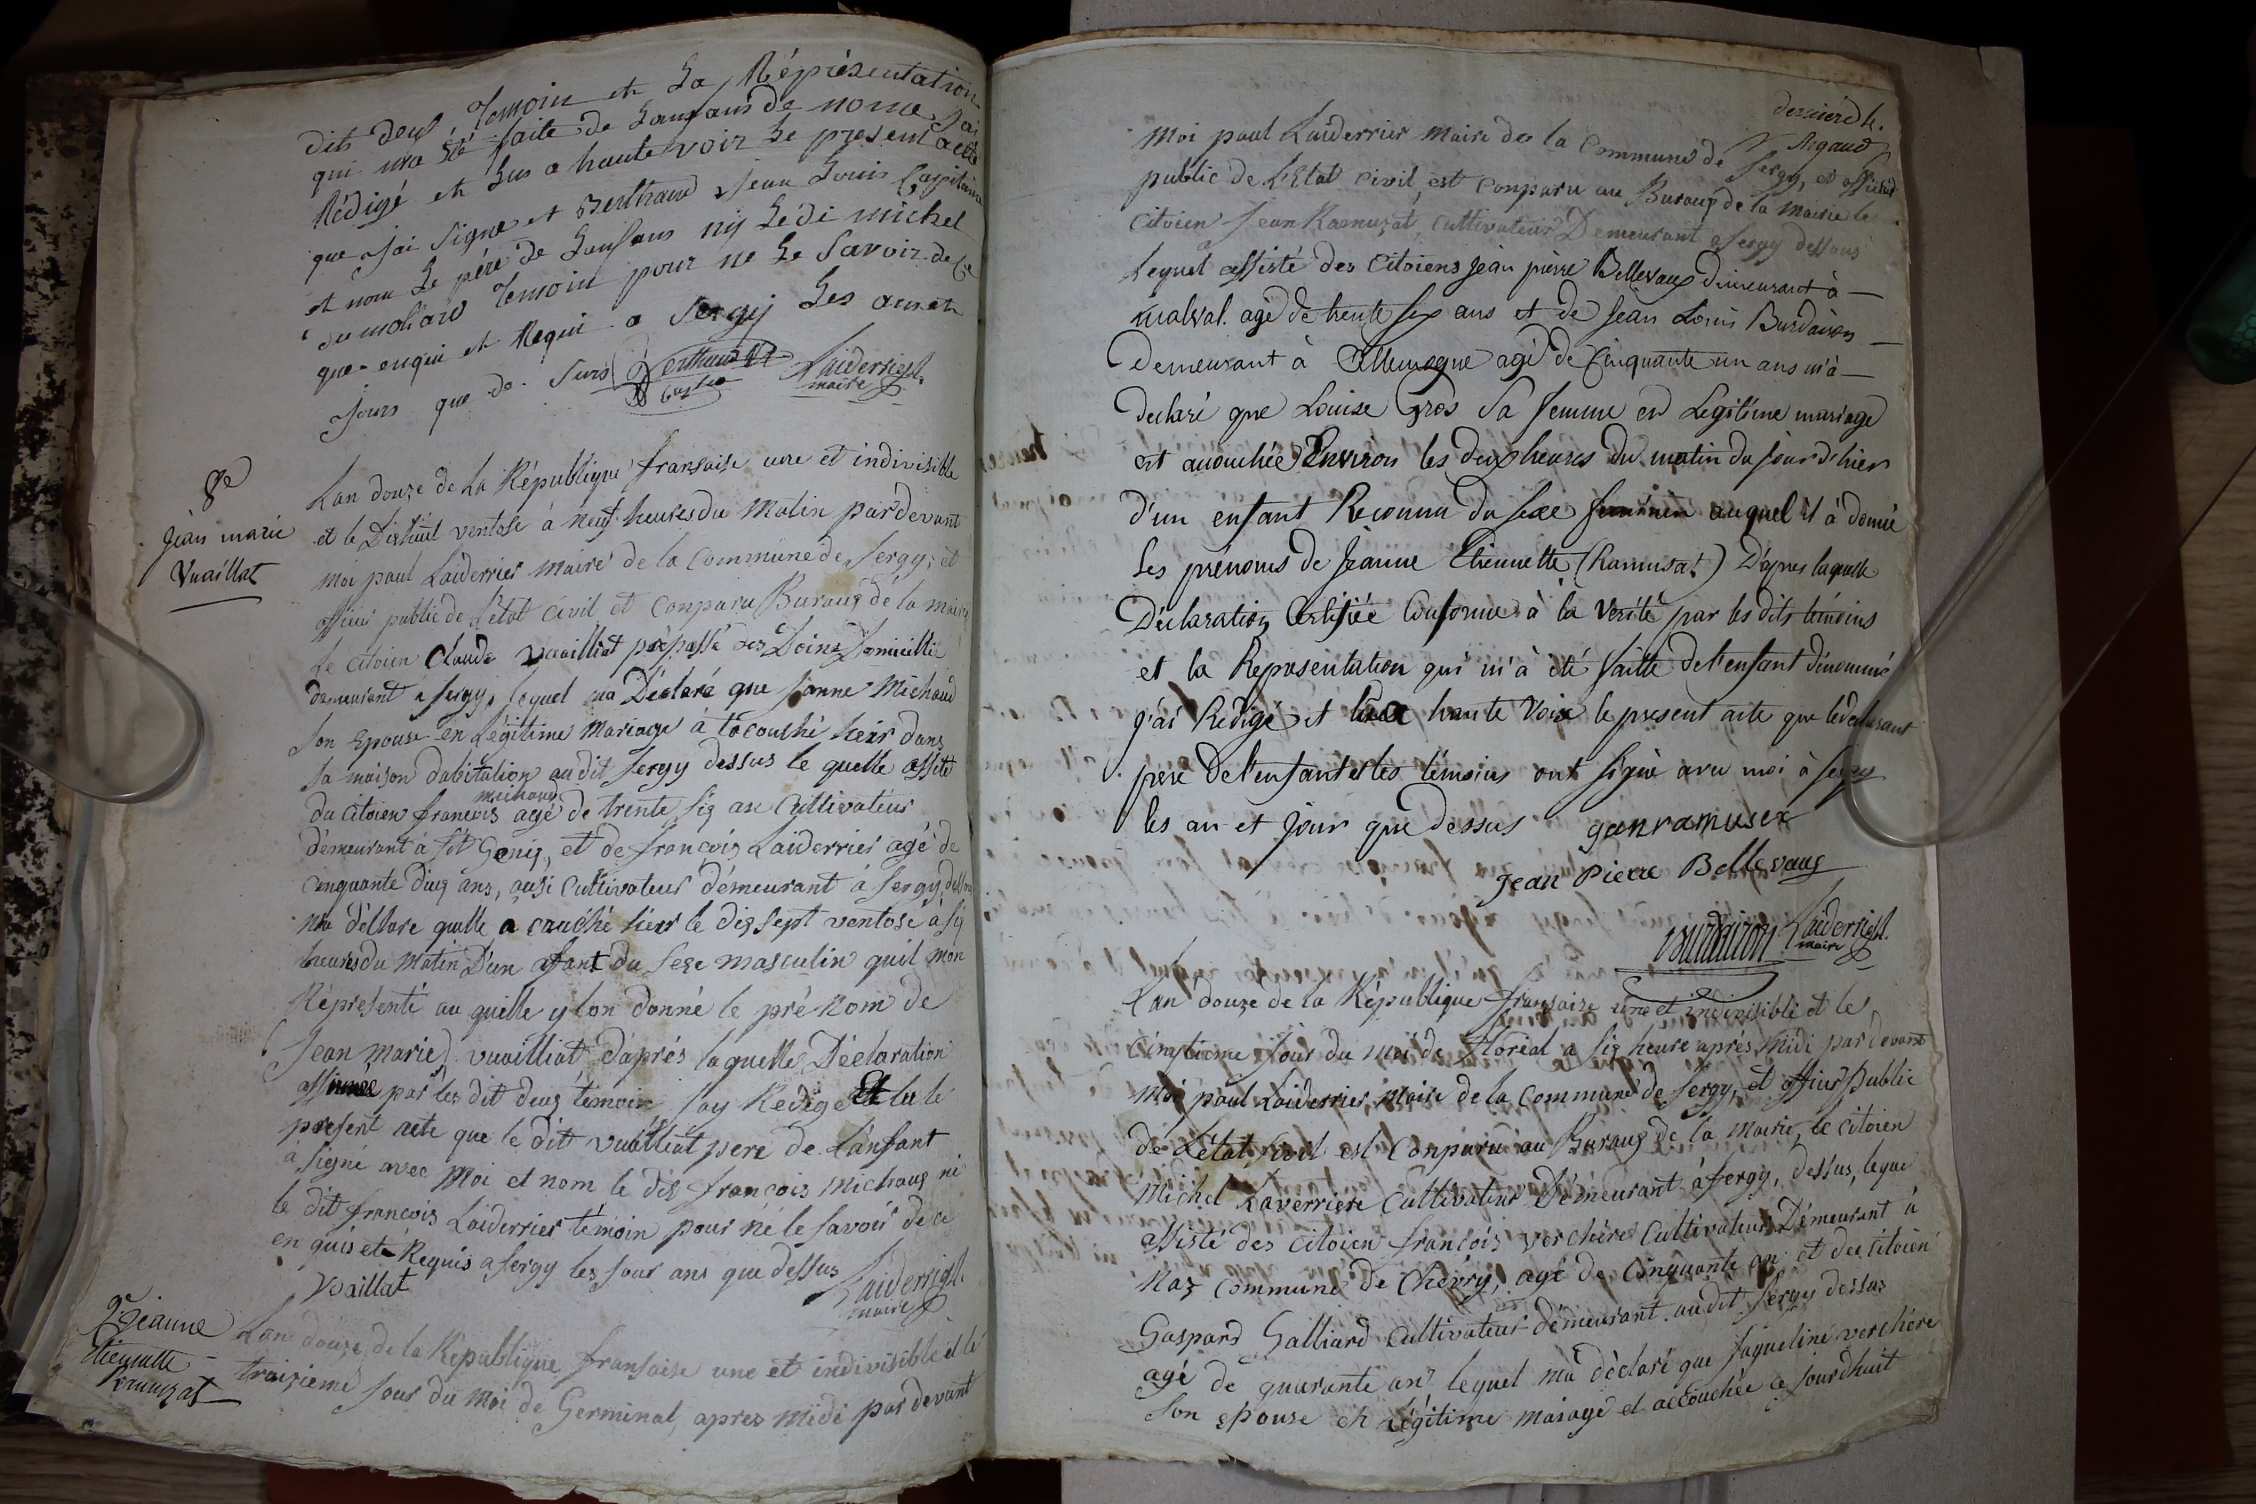 dits deux Temoin et La Réprésentation
qui ma été faite de Lanfans de nome jai
Rédigé et Lus a haute voir Le present acte
que jai Signe et Berthaud Jean Louis Capitaine
et nom Le pére de Lanfans nij Ledi michel
du molard Temoin pour ne Le Savoir de Ce
que enqui et Requi a Sergij Les an et
jours que de Surs Laiderrier
maire
8e
Jean marie
Vuaillat
Lan douze de la République fransaise une et indivisible
et le Dixhuit ventose à neuf heures du Matin pardevant
moi paul Laiderrier maire de la Commune de Sergy, et
officier public de l'état civil et conparu Buraux de la mairie
Le citoien Claude Vuailliat prépassé des Doine Domicillié
demeurant a Sergy, lequel ma Déclaré que Janne Michaud
Son Epouse en Légitime Mariage à tacouché heir dans
Sa maison dabitation au dit Sergy dessus le quelle assite
du citoien francois michaux agé de trente six an Cultivateur
démeurant à St Genix, et de françois Laiderrier agé de
cinquante dieux ans, ausi Cultivateur démeurant á Sergy dessus
ma déllare quelle a couché hier le dixsept ventose à six
heures du Matin D'un afant du Sexe masculin quil mon
Répresenté au quelle y lon donné le pré nom de
(Jean marie) vuailliat d'aprés laquelle Déclaration
affirmée par les dit deux témoin Jay Redigé Et lu le
present acte que le dit vuailliat pere de lanfant
à Signé avec Moi et nom le dit françois Michaux ni
le dit francois Laiderrier témoin pour né le Savoir de ce
en quis et Requis a Sergy les jour ans que dessus
Vuaillat Laiderrier
maire
9e Jeanne
Etiennette
Ramuzat
Lan douze de la République fransaise une et indivisible et le
traizieme Jour du moi de Germinal, apres Midi par devant
dernière h.
Rigaud
Moi paul Laiderrier maire de la Commune de Sergy, et officier
public de L'Etat civil, est conparu au Buraux de la mairie le
Citoien Jean Ramuzat, Cultivateur Demeurant a Sergy dessous
Lequel assisté des Citoiens Jean pierre Bellevaux dimeurant à
malval. agé de trente six ans et de Jean Louis Burdairon
Demeurant à Allemogne agé de Cinquante un ans m'à
declaré que Louise Gros Sa femme en Legitime mariage
est acouchée Environ les deux heures du matin du jour d'hier
d'un enfant Reconnu du sexe feminin auquel il à donné
les prénoms de Jeanne Etiennette (Ramusat) D'apres laquelle
Déclaration Certifiée Conforme à la verité par les dits témoins
et la Representation qui m'à été faitte de l'enfant dénommé
j'ai Rédigé et lu a haute Voix le present acte que le declarant
pere de l'enfant et les témoins ont signé avec moi à Sergy
les an et jour que dessus gan ramusex
Jean Pierre Bellevaux
Burdairon Laiderrier
maire
Lan douze de la République fransaise une et indivisible et le
Cinqtieme Jour du moi de floréal a six heure aprés Midi par devant
Moi paul Laiderrier, Maire de la Commune de Sergy, et officier Public
de L'état Civil est Conparu au Buraux de la mairie, le citoien
Michel Laverriere Cultivateur Démeurant à Sergy, dessus, leque
assisté des citoien françois verchère Cultivateur Démeurant à
Naz Commune de Chévry, agé de Cinquante an et du citoien
Gaspard Galliard Cultivateur démeurant au dit Sergy dessus
agé de quarante an lequel mà déclaré que Jaqueline verchére
Son epouse en légitime mariage et accouchée ce jourdhuit